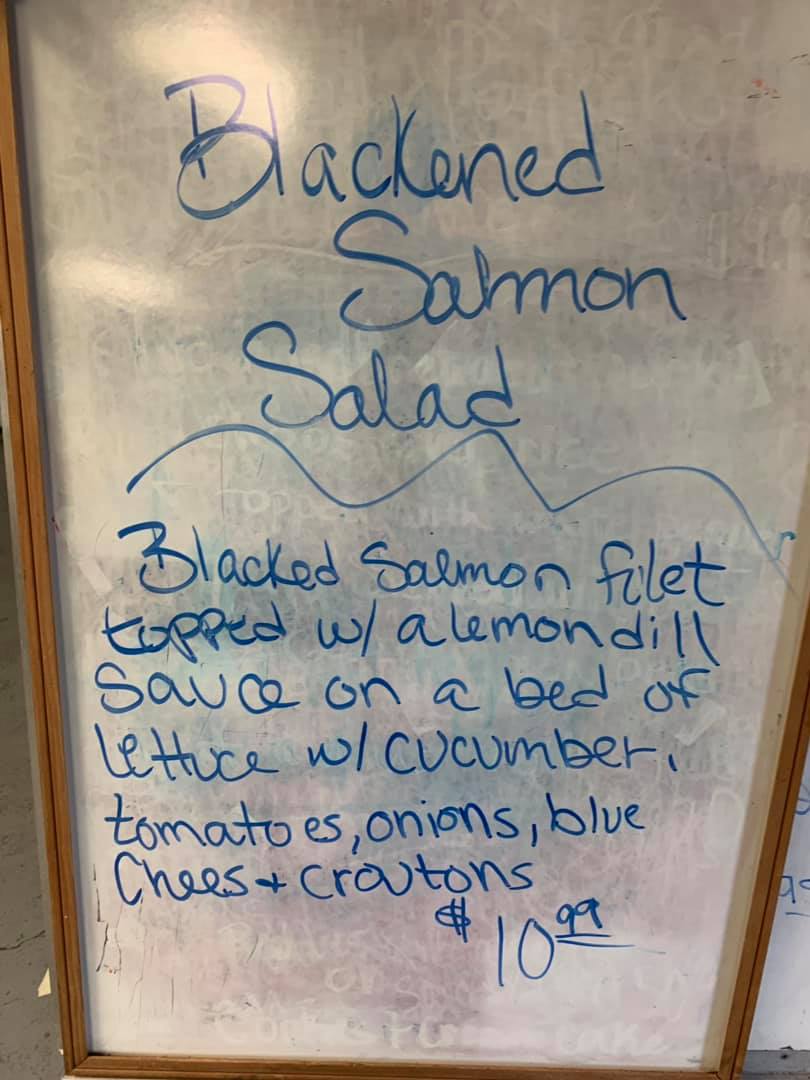 Blackened
Salmon
Salad
Blacked Salmon filet
topped w/ a lemon dill
Sauce on a bed of
lettuce w/ cucumber,
tomatoes, onions, blue
Chees + croutons
$ 10 99